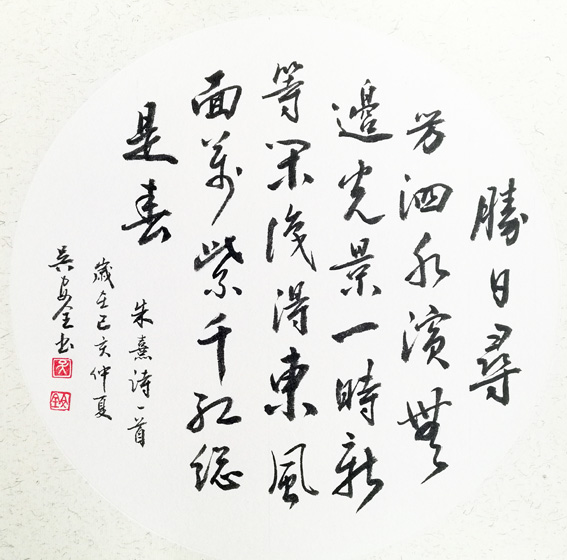 勝日尋
芳泗水濱無
邊光景一時新
等閑識得東風
面萬紫千紅總
是春
朱熹詩一首
歲在己亥仲夏
吴安全书